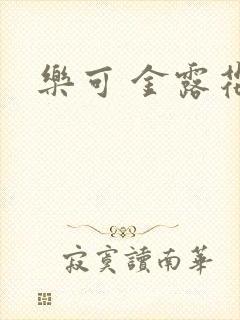 樂可 金露花
寂寞讀南華